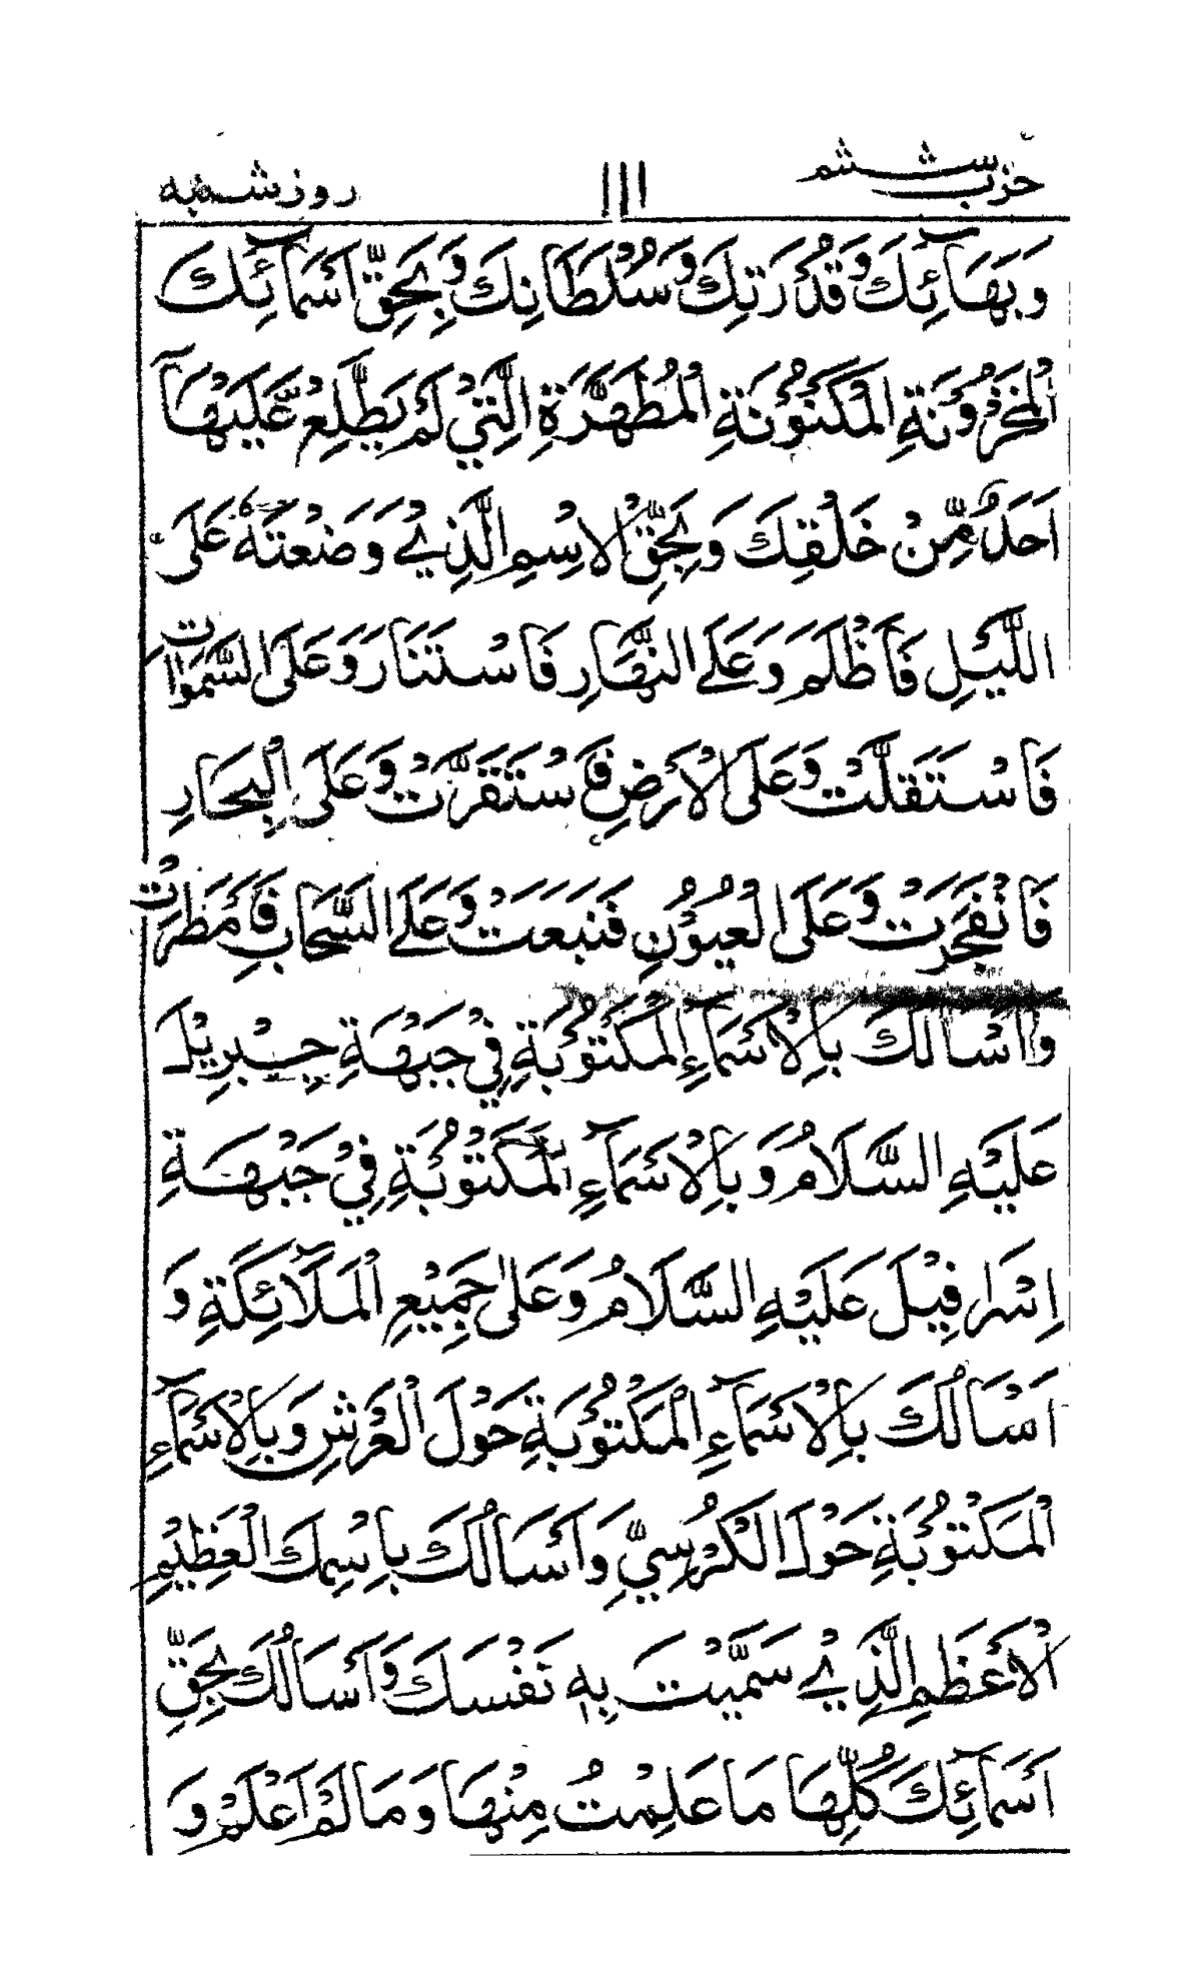 حزب ششم ١١١ روز شنبه
وَبَهَآئِكَ وَقُدْرَتِكَ وَسُلْطَانِكَ وَبِحَقِّ اَسْمَآئِكَ
الْمَخْزُوْنَةِ الْمَكْنُوْنَةِ الْمُطَهَّرَةِ الَّتِيْ لَمْ يَطَّلِعْ عَلَيْهَآ
اَحَدٌ مِّنْ خَلْقِكَ وَبِحَقِّ الْاِسْمِ الَّذِيْ وَضَعْتَهٗ عَلَى
اللَّيْلِ فَاَظْلَمَ وَعَلَى النَّهَارِ فَاسْتَنَارَ وَعَلَى السَّمٰوَاتِ
فَاسْتَقَلَّتْ وَعَلَى الْاَرْضِ فَاسْتَقَرَّتْ وَعَلَى الْبِحَارِ
فَانْفَجَرَتْ وَعَلَى الْعُيُوْنِ فَنَبَعَتْ وَعَلَى السَّحَابِ فَاَمْطَرَتْ
وَاَسْاَلُكَ بِالْاَسْمَآءِ الْمَكْتُوْبَةِ فِيْ جَبْهَةِ جِبْرِيْلَ
عَلَيْهِ السَّلَامُ وَبِالْاَسْمَآءِ الْمَكْتُوْبَةِ فِيْ جَبْهَةِ
اِسْرَافِيْلَ عَلَيْهِ السَّلَامُ وَعَلٰى جَمِيْعِ الْمَلَآئِكَةِ وَ
اَسْاَلُكَ بِالْاَسْمَآءِ الْمَكْتُوْبَةِ حَوْلَ الْعَرْشِ وَبِالْاَسْمَآءِ
الْمَكْتُوْبَةِ حَوْلَ الْكُرْسِيِّ وَاَسْاَلُكَ بِاسْمِكَ الْعَظِيْمِ
الْاَعْظَمِ الَّذِيْ سَمَّيْتَ بِهٖ نَفْسَكَ وَاَسْاَلُكَ بِحَقِّ
اَسْمَآئِكَ كُلِّهَا مَا عَلِمْتُ مِنْهَا وَمَا لَمْ اَعْلَمْ وَ